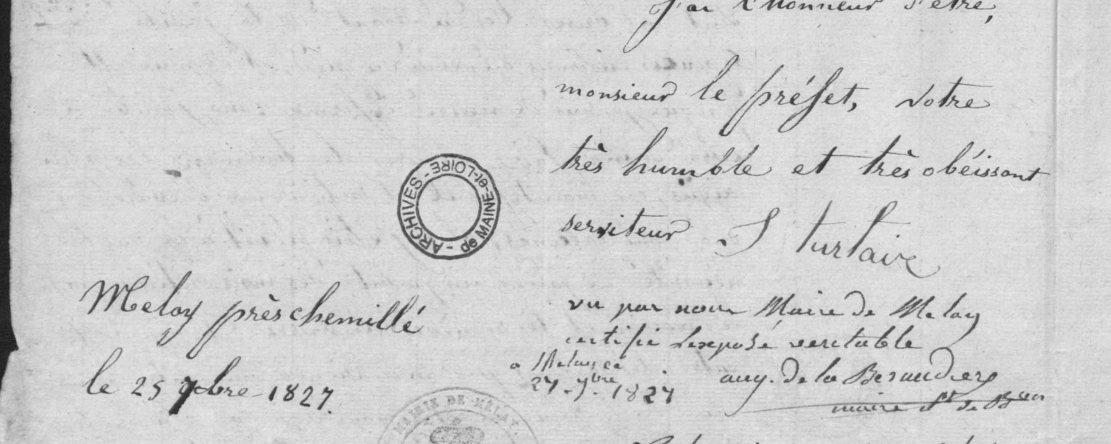 J'ai l'honneur d'être,
monsieur le préfet, votre
très humble et très obéissant
serviteur J turlaire
ARCHIVES - de MAINE-et-LOIRE -
Melay près chemillé
le 25 7bre 1827.
vu par nous Maire de Melay
certifie l'exposé véritable
a Melay ce
27. 7bre 1827
aug. de la Beraudiere
maire
MAIRIE DE MELAY